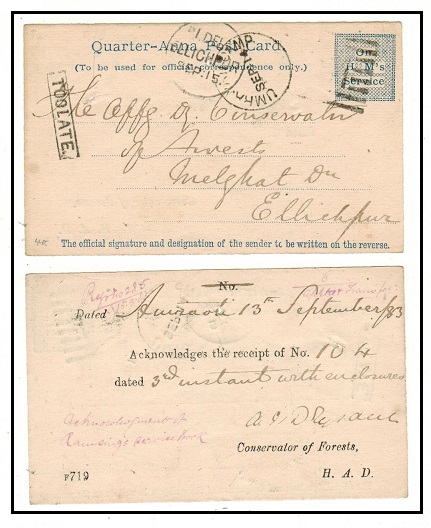 Quarter-Anna Post Card.
(To be used for official correspondence only.)
On
H. M's
Service
TOO LATE.
ELLICHPUR
SEP. 15
The Offg Dy Conservator
of Forests
Melghat Dn
Ellichpur
The official signature and designation of the sender to be written on the reverse.
No.
Dated Amraoti 13th September/83
Acknowledges the receipt of No. 104
dated 3rd instant with enclosures
Conservator of Forests,
H. A. D.
F719